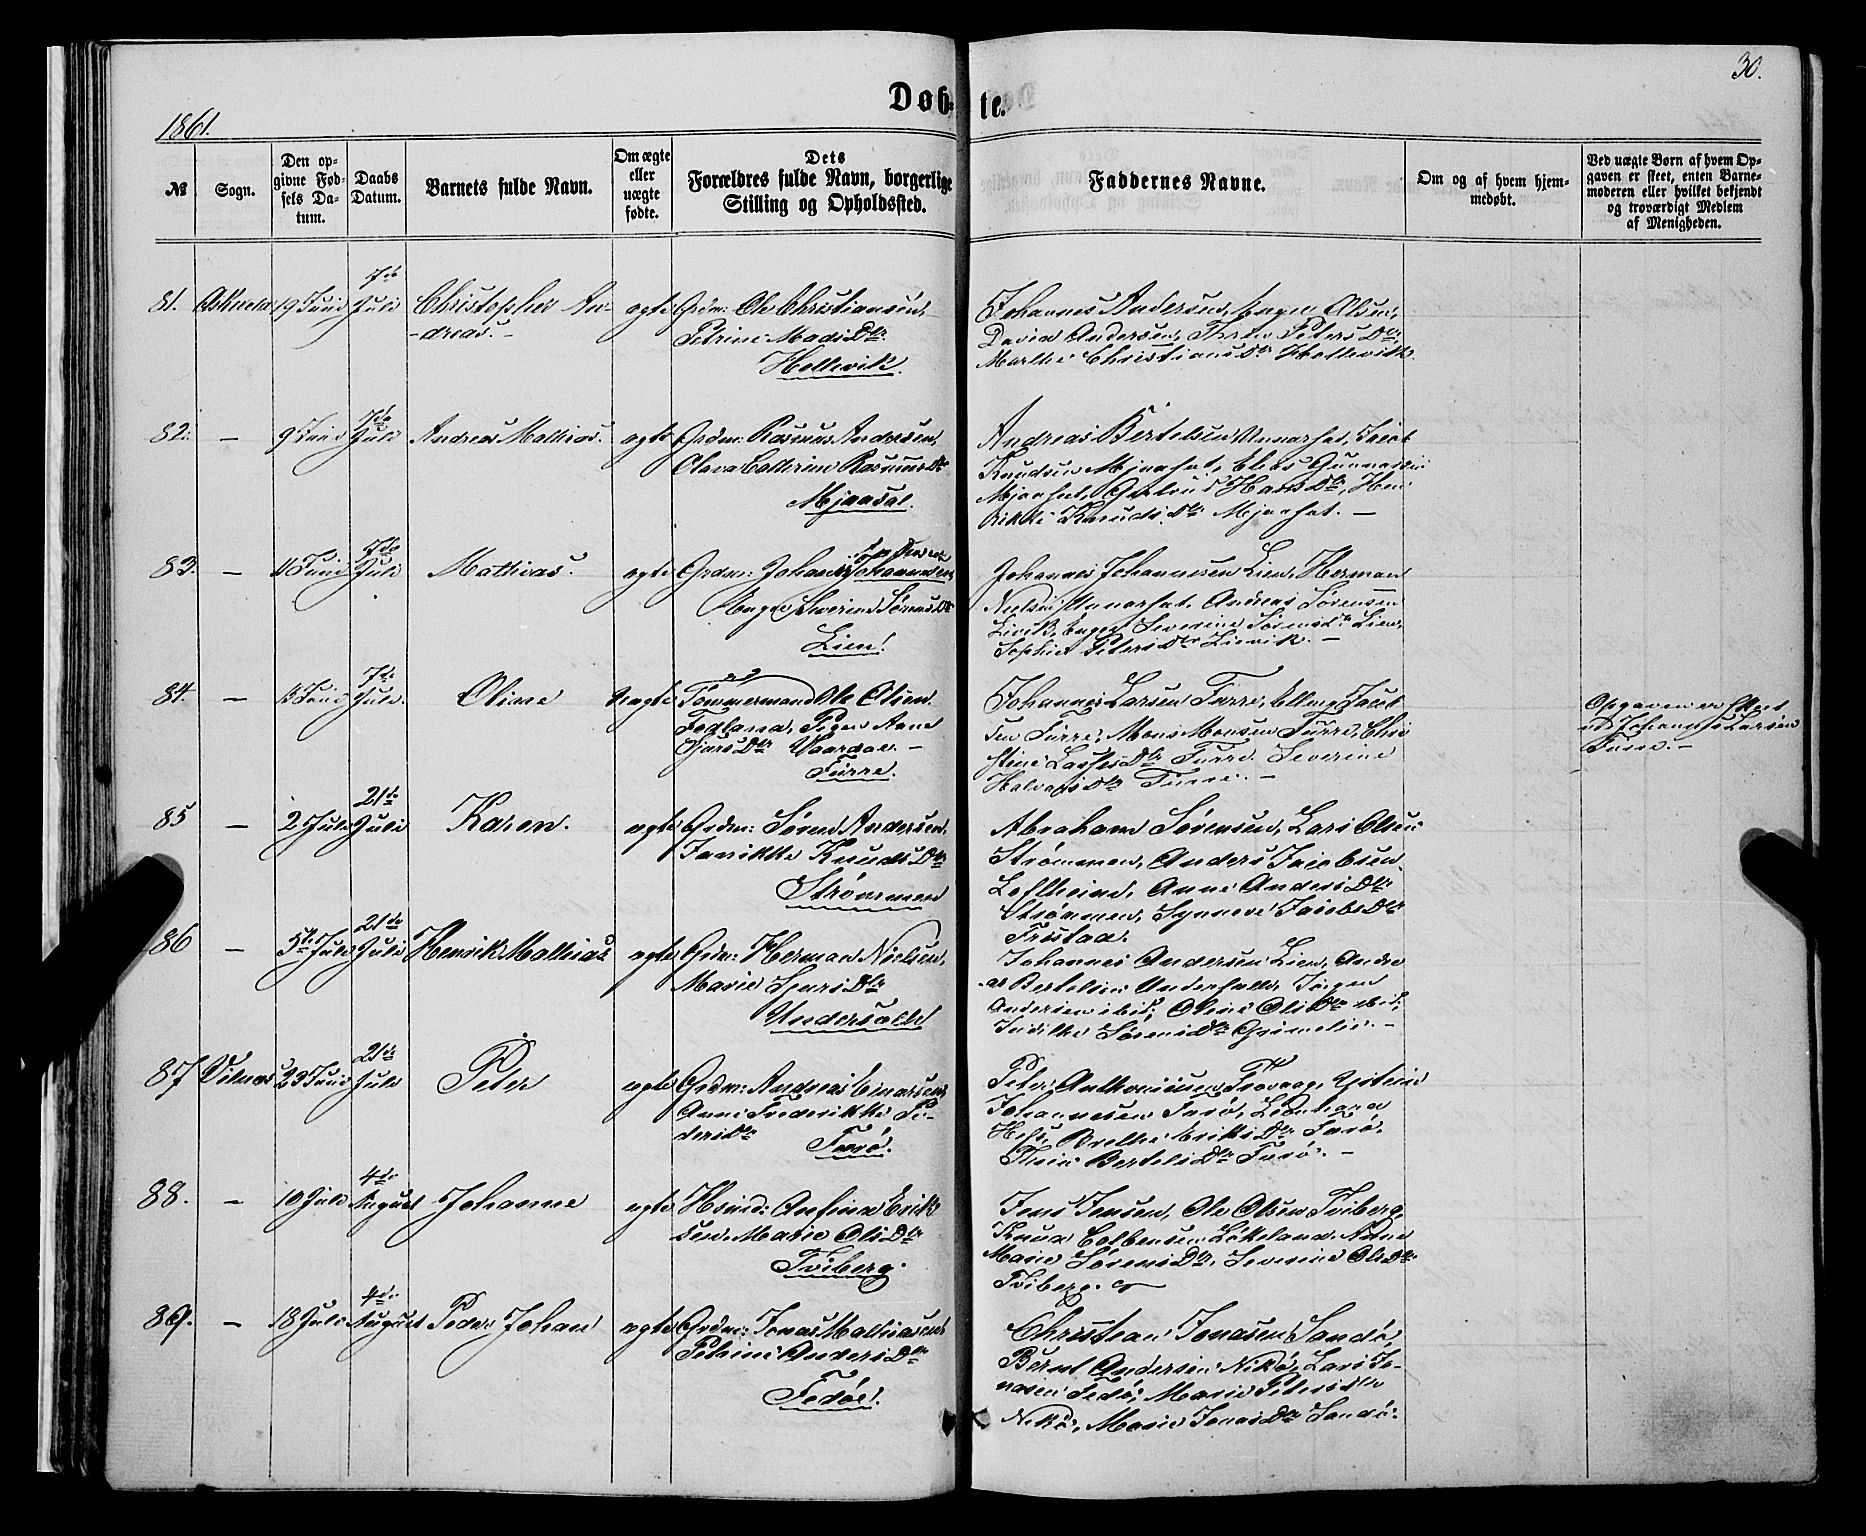 30.
Døb-
te.
1861.
№
Sogn.
Den op-
givne Fød-
sels Da-
tum.
Daabs
Datum.
Barnets fulde Navn.
Om ægte
eller
uægte
fødte.
Dets
Forældres fulde Navn, borgerlige
Stilling og Opholdssted.
Faddernes Navne.
Om og af hvem hjem-
medøbt.
Ved uægte Børn af hvem Op-
gaven er skeet, enten Barne-
moderen eller hvilket bekjendt
og troværdigt Medlem
af Menigheden.
81. Askvold 19 Juni 7de Juli
Christopher An-
-dreas.
ægte Grdm: Ole Christiansen,
Petrine Mads Dtr.
Hellevik.
Johannes Andersen, Olsen,
David Andersen, Peters Dtr
Marthe Christians Dtr Hellevik
82. — 9 Juni 7de Juli Andreas Mathias.
ægte Grdm: Rasmus Andersen,
Olava Cathrine Rasmus Dtr
Mjaasæt.
Andreas Bertelsen Jacob
Knudsen Mjaaset, Gunnarsen
Mjaaset, Hans Dtr, Hen-
rikke Knuds Dtr Mjaaset. —
83. — 11 Juni 7de Juli Mathias.
ægte Grdm: Johannes Johannesen
Severine Sørens Dtr
Lien.
Johannes Johannesen Lien, Herman
Nielsen Andreas Sørensen
Lievik, Inger Severine Sørensdtr Lien,
Sophie Peters Dtr Lievik. —
84. — 13 Juni 7de Juli. Oline
Uægte Tømmermand Ole Olsen
Fodland, Pigen Anne
Sjurs Dtr Vaardal. —
Furre.
Johannes Larsen Furre, Elling Jacob-
sen Furre, Mons Monsen Furre, Chri-
stine Lasses Dtr Furre. Severine
Halvors Dtr Furre. —
Opgaven er skeet
ved Johannes Larsen
Furre. —
85 — 2 Juli 21de Juli Karen.
ægte Grdm: Søren Andersen,
Knuds Dtr
Strømmen
Abraham Sørensen, Lars Olsen
Strømmen, Anders Jacobsen
Anne Anders Dtr
Strømmen, Synneve Jacobs Dtr
Fristad.
86 — 5te Juli 21de Juli Henrik Mathias
ægte Grdm: Herman Nielsen,
Marie Sjurs Dtr
Undersalle
Johannes Andersen Lien, Andre-
as Bertelsen Jørgen
Andersen ibid: Oline Ols Dtr ibid:
Sørens Dtr Grimelid. —
87 Vilnæs 23 Juni 21de Juli Peter
ægte Grdm: Andreas Einarsen
Anne Frederikke Pe-
ders Dtr Færø.
Peter Anthonisen
Johannesen Færø,
Brethe Eriks Dtr Færø.
Bertels Dtr Færø. —
88. — 10 Juli 4de August Johanne
ægte Hsmd: Anfind Erik-
sen, Marie Ols Dtr
Tviberg.
Jens Jensen, Ole Olsen Tviberg,
Knud Colbensen Løkeland, Anne
Marie Sørens Dtr, Severine Ols Dtr
Tviberg.
89. — 18 Juli 4de August Peder Johan
ægte Grdm: Jonas Mathiasen
Petrine Anders Dtr
Fedøe.
Christian Jonasen Sandø,
Bernt Andersen Nikø, Lars Jo-
nasen Fedø, Marie Petersdtr
Nikø, Marie Jonas Dtr Sandø.